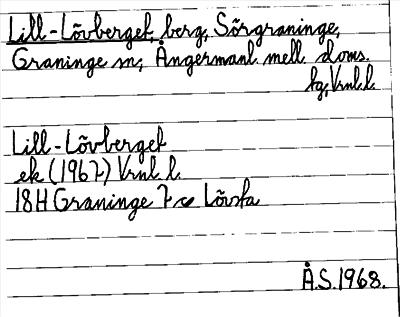 Lill-Lövberget, berg, Sörgraninge,
Graninge sn, Ångermanl. mell. doms.
tg, Vrnl. l.
Lill-Lövberget
ek (1967) Vrnl. l.
18H Graninge 7 c Lövsta
Å.S. 1968.